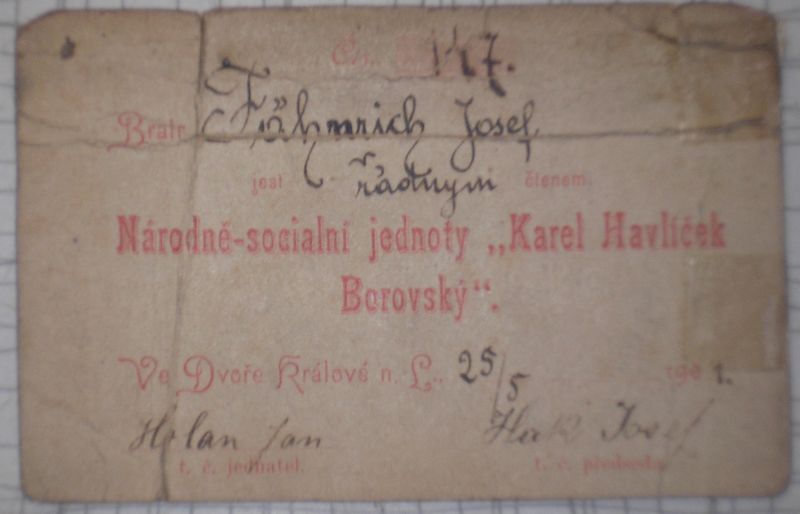 Čís. 147.
Bratr Führich Josef
jest řádným členem
Národně-socialní jednoty „Karel Havlíček
Borovský“.
Ve Dvoře Králové n. L., 25/5 1901.
Holan Jan Josef
t. č. jednatel. t. č. předseda.